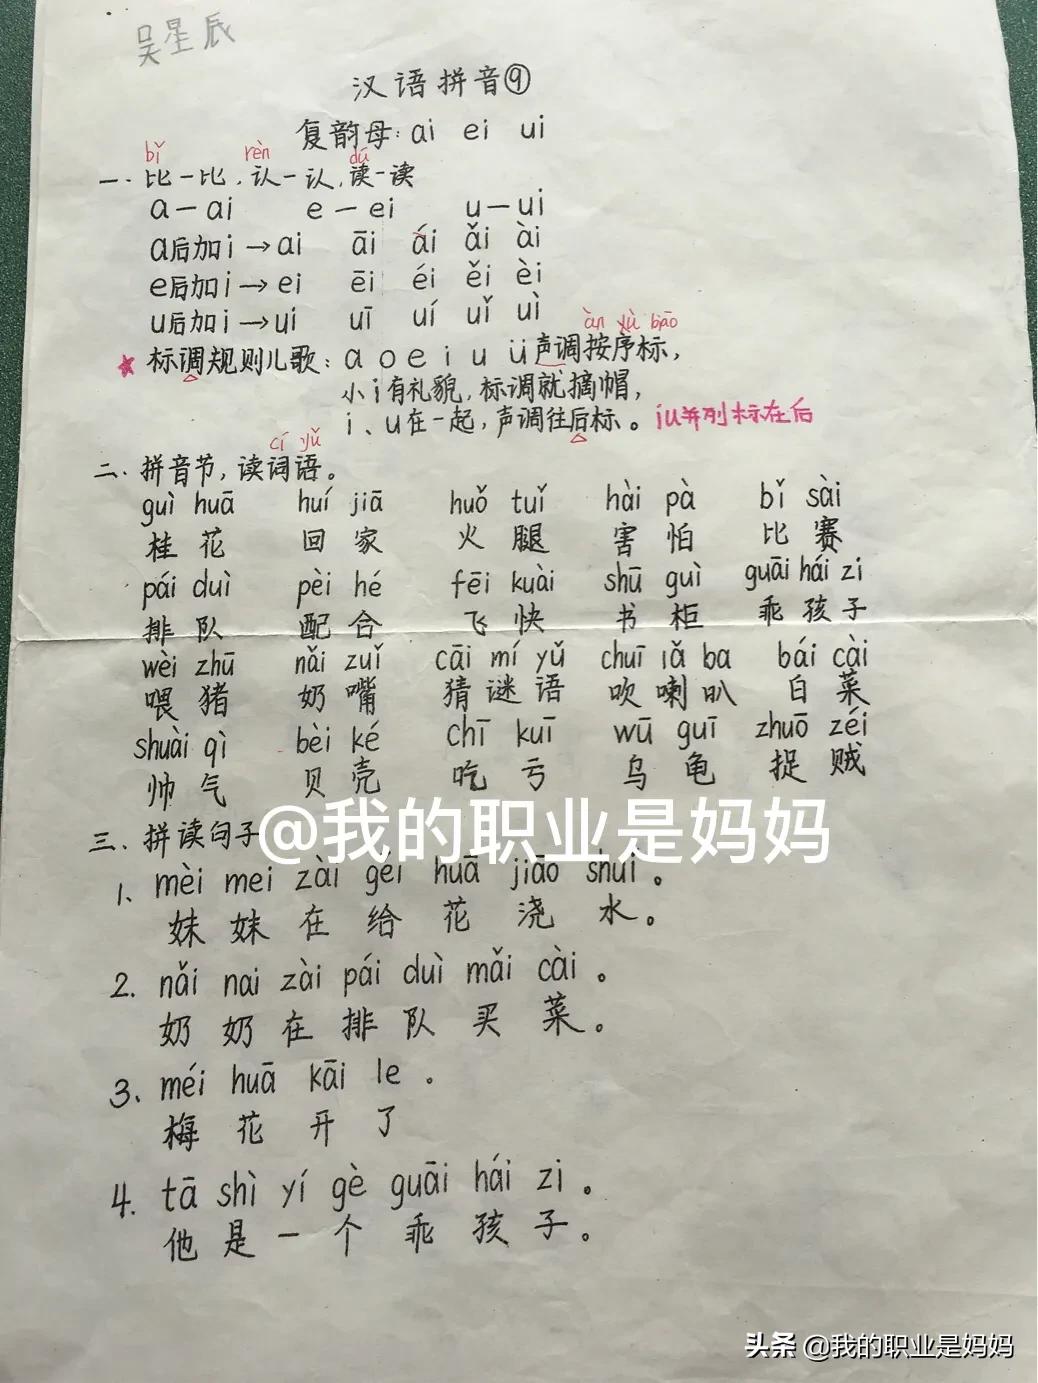 吴星辰
汉语拼音⑨
复韵母: ai ei ui
bǐ rèn dú
一. 比一比, 认一认, 读一读
a — ai e — ei u — ui
a后加i → ai āi ái ǎi ài
e后加i → ei ēi éi ěi èi
u后加i → ui uī uí uǐ uì
àn xù bāo
★ 标调规则儿歌: a o e i u ü 声调按序标,
小i有礼貌, 标调就摘帽,
i、u在一起, 声调往后标。 iu并列标在后
cí yǔ
二. 拼音节, 读词语。
guì huā huí jiā huǒ tuǐ hài pà bǐ sài
桂花 回家 火腿 害怕 比赛
pái duì pèi hé fēi kuài shū guì guāi hái zi
排队 配合 飞快 书柜 乖孩子
wèi zhū nǎi zuǐ cāi mí yǔ chuī lǎ ba bái cài
喂猪 奶嘴 猜谜语 吹喇叭 白菜
shuài qì bèi ké chī kuī wū guī zhuō zéi
帅气 贝壳 吃亏 乌龟 捉贼
三. 拼读句子
@我的职业是妈妈
1、mèi mei zài gěi huā jiāo shuǐ 。
妹妹在给花浇水。
2. nǎi nai zài pái duì mǎi cài 。
奶奶在排队买菜。
3、méi huā kāi le .
梅花开了
4. tā shì yí gè guāi hái zi 。
他是一个乖孩子。
头条 @我的职业是妈妈